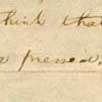 think tha
pressed